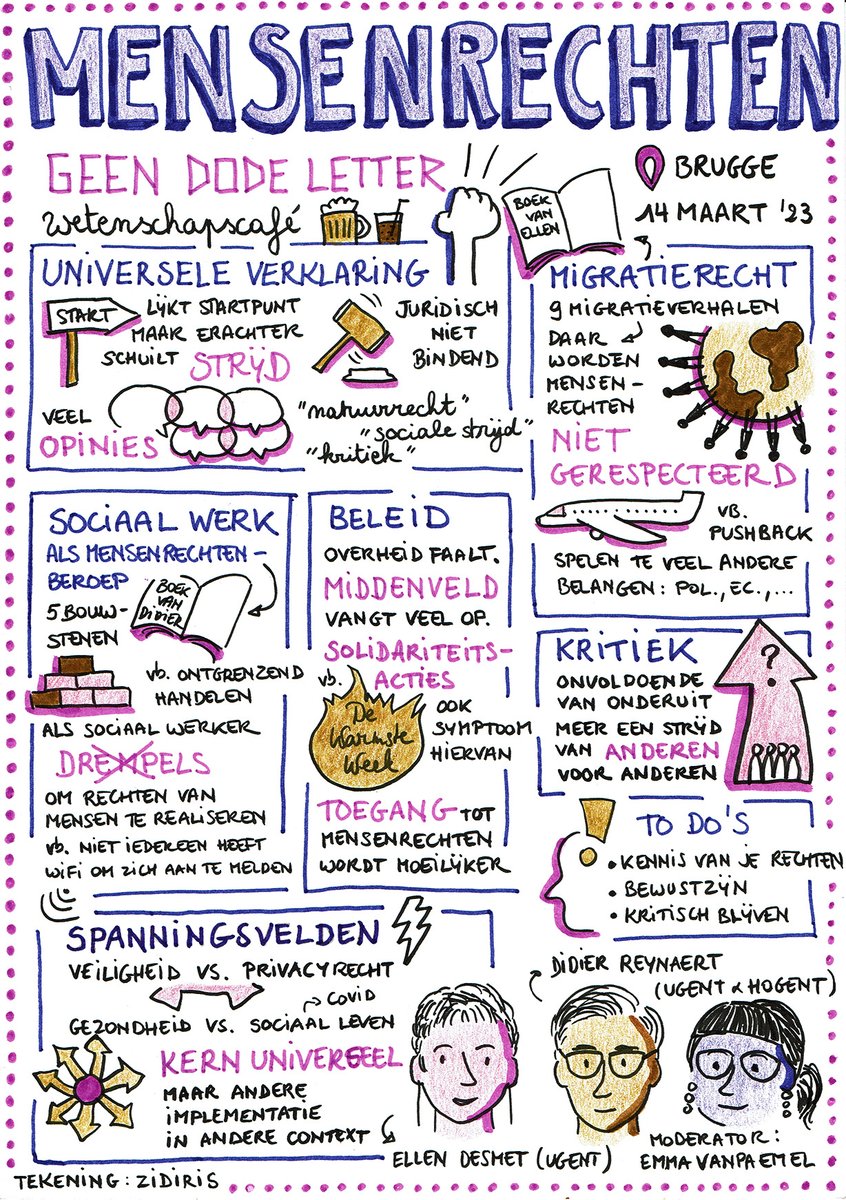 MENSENRECHTEN
GEEN DODE LETTER
wetenschapscafé
BOEK
VAN
ELLEN
BRUGGE
14 MAART '23
UNIVERSELE VERKLARING
START
LIJKT STARTPUNT
MAAR ERACHTER
SCHUILT STRIJD
JURIDISCH
NIET
BINDEND
VEEL
OPINIES
"natuurrecht"
"sociale strijd"
"kritiek"
MIGRATIERECHT
9 MIGRATIEVERHALEN
DAAR
WORDEN
MENSEN-
RECHTEN
NIET
GERESPECTEERD
VB.
PUSHBACK
SPELEN TE VEEL ANDERE
BELANGEN: POL., EC., ...
SOCIAAL WERK
ALS MENSENRECHTEN-
BEROEP
BOEK
VAN
DIDIER
5 BOUW-
STENEN
vb. ONTGRENZEND
HANDELEN
ALS SOCIAAL WERKER
DREMPELS
OM RECHTEN VAN
MENSEN TE REALISEREN
vb. NIET IEDEREEN HEEFT
WIFI OM ZICH AAN TE MELDEN
BELEID
OVERHEID FAALT.
MIDDENVELD
VANGT VEEL OP.
SOLIDARITEITS-
vb. ACTIES
De
Warmste
Week
OOK
SYMPTOOM
HIERVAN
TOEGANG TOT
MENSENRECHTEN
WORDT MOEILIJKER
KRITIEK
ONVOLDOENDE
VAN ONDERUIT
MEER EEN STRIJD
VAN ANDEREN
VOOR ANDEREN
?
TO DO'S
• KENNIS VAN JE RECHTEN
• BEWUSTZIJN
• KRITISCH BLIJVEN
SPANNINGSVELDEN
VEILIGHEID VS. PRIVACYRECHT
COVID
GEZONDHEID VS. SOCIAAL LEVEN
KERN UNIVERSEEL
MAAR ANDERE
IMPLEMENTATIE
IN ANDERE CONTEXT
DIDIER REYNAERT
(UGENT & HOGENT)
ELLEN DESMET (UGENT)
MODERATOR:
EMMA VANPAEMEL
TEKENING: ZIDIRIS